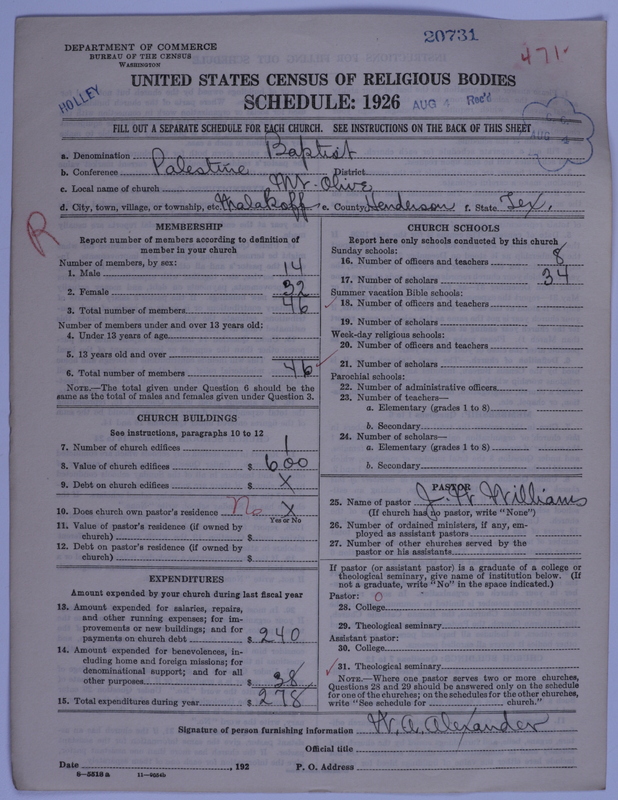 20731
471-
DEPARTMENT OF COMMERCE
BUREAU OF THE CENSUS
WASHINGTON
HOLLEY
UNITED STATES CENSUS OF RELIGIOUS BODIES
SCHEDULE: 1926
AUG 4 Rec'd
FILL OUT A SEPARATE SCHEDULE FOR EACH CHURCH. SEE INSTRUCTIONS ON THE BACK OF THIS SHEET
AUG 4
a. Denomination Baptist
b. Conference Palestine District
c. Local name of church Mt. Olive
d. City, town, village, or township, etc. Malakoff e. County Henderson f. State Tex.
R
MEMBERSHIP
Report number of members according to definition of
member in your church
Number of members, by sex:
1. Male 14
2. Female 32
3. Total number of members 46
Number of members under and over 13 years old:
4. Under 13 years of age
5. 13 years old and over
6. Total number of members 46
NOTE.—The total given under Question 6 should be the
same as the total of males and females given under Question 3.
CHURCH BUILDINGS
See instructions, paragraphs 10 to 12
7. Number of church edifices 1
8. Value of church edifices $ 600
9. Debt on church edifices $ X
10. Does church own pastor's residence No X
Yes or No
11. Value of pastor's residence (if owned by
church) $
12. Debt on pastor's residence (if owned by
church) $
EXPENDITURES
Amount expended by your church during last fiscal year
13. Amount expended for salaries, repairs,
and other running expenses; for im-
provements or new buildings; and for
payments on church debt $ 240
14. Amount expended for benevolences, in-
cluding home and foreign missions; for
denominational support; and for all
other purposes $ 38
15. Total expenditures during year $ 278
CHURCH SCHOOLS
Report here only schools conducted by this church
Sunday schools:
16. Number of officers and teachers 8
17. Number of scholars 34
Summer vacation Bible schools:
18. Number of officers and teachers
19. Number of scholars
Week-day religious schools:
20. Number of officers and teachers
21. Number of scholars
Parochial schools:
22. Number of administrative officers
23. Number of teachers—
a. Elementary (grades 1 to 8)
b. Secondary
24. Number of scholars—
a. Elementary (grades 1 to 8)
b. Secondary
PASTOR
25. Name of pastor J. W. Williams
(If church has no pastor, write "None")
26. Number of ordained ministers, if any, em-
ployed as assistant pastors
27. Number of other churches served by the
pastor or his assistants
If pastor (or assistant pastor) is a graduate of a college or
theological seminary, give name of institution below. (If
not a graduate, write "No" in the space indicated.)
Pastor: 0
28. College
29. Theological seminary
Assistant pastor:
30. College
31. Theological seminary
NOTE.—Where one pastor serves two or more churches,
Questions 28 and 29 should be answered only on the schedule
for one of the churches; on the schedules for the other churches,
write "See schedule for church."
Signature of person furnishing information W. A. Alexander
Official title
Date , 192 P. O. Address
8-5518a 11-9054b